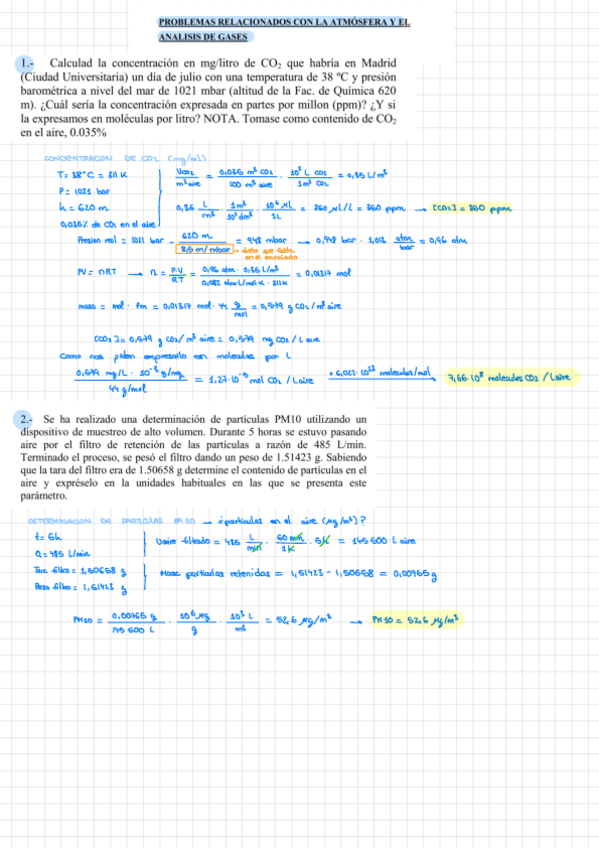 PROBLEMAS RELACIONADOS CON LA ATMÓSFERA Y EL
ANALISIS DE GASES
1.- Calculad la concentración en mg/litro de CO₂ que habría en Madrid
(Ciudad Universitaria) un día de julio con una temperatura de 38 ºC y presión
barométrica a nivel del mar de 1021 mbar (altitud de la Fac. de Química 620
m). ¿Cuál sería la concentración expresada en partes por millon (ppm)? ¿Y si
la expresamos en moléculas por litro? NOTA. Tomase como contenido de CO₂
en el aire, 0.035%
CONCENTRACION DE CO2 (mg/mL)
T = 38°C = 311 K
VCO2 / m³ aire = 0,035 m³ CO2 / 100 m³ aire · 10³ L CO2 / 1m³ CO2 = 0,35 L/m³
P = 1021 bar
h = 620 m
0,035% de CO2 en el aire
0,35 L/m³ · 1m³/10³dm³ · 10⁶ µL/1L = 350 µL/L = 350 ppm → [CO2] = 350 ppm
Presion real = 1021 bar - 620 m / 8,5 m/mbar = 948 mbar → 0,948 bar · 1,013 atm/bar = 0,96 atm
dato que falta
en el enunciado
PV = nRT → n = P·V / RT = 0,96 atm · 0,35 L/m³ / 0,082 atm·L/mol·K · 311K = 0,01317 mol
masa = mol · Pm = 0,01317 mol · 44 g/mol = 0,579 g CO2 / m³ aire
[CO2] = 0,579 g CO2/ m³ aire = 0,579 mg CO2 / L aire
Como nos piden expresarlo en moleculas por L
0,579 mg/L · 10⁻³ g/mg / 44 g/mol = 1,27·10⁻⁵ mol CO2 / L aire · 6,022·10²³ moleculas/mol → 7,66·10⁸ moleculas CO2 / L aire
2.- Se ha realizado una determinación de partículas PM10 utilizando un
dispositivo de muestreo de alto volumen. Durante 5 horas se estuvo pasando
aire por el filtro de retención de las partículas a razón de 485 L/min.
Terminado el proceso, se pesó el filtro dando un peso de 1.51423 g. Sabiendo
que la tara del filtro era de 1.50658 g determine el contenido de partículas en el
aire y expréselo en la unidades habituales en las que se presenta este
parámetro.
DETERMINACION DE PARTICULAS PM 10 → ¿particulas en el aire (µg/m³)?
t = 5h
Vaire filtrado = 485 L/min · 60 min/1h · 5h = 145500 L aire
Q = 485 L/min
Tara filtro = 1,50658 g
Masa particulas retenidas = 1,51423 - 1,50658 = 0,00765 g
Peso filtro = 1,51423 g
PM10 = 0,00765 g / 145 500 L · 10⁶ µg / g · 10³ L / m³ = 52,6 µg/m³ → PM 10 = 52,6 µg/m³